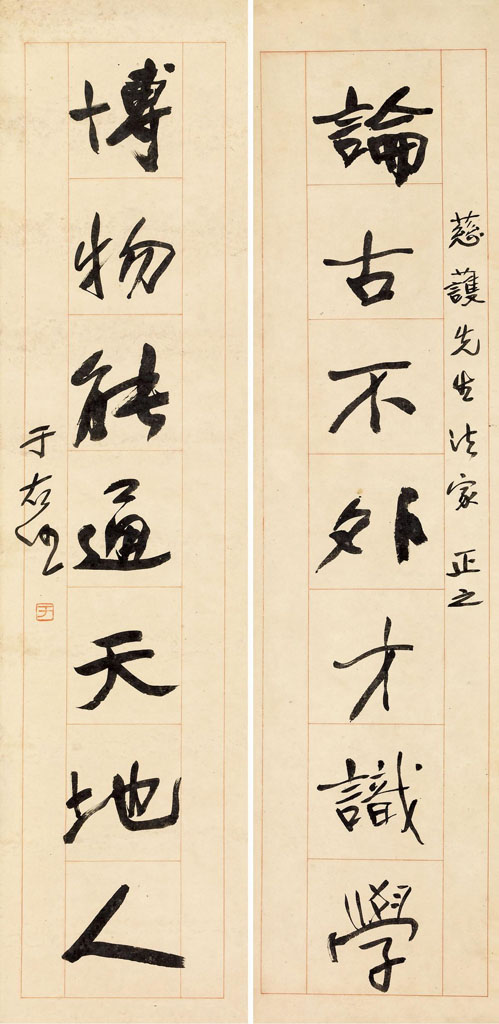 慈護先生法家 正之
論古不外才識學
博物能通天地人
于右任
于